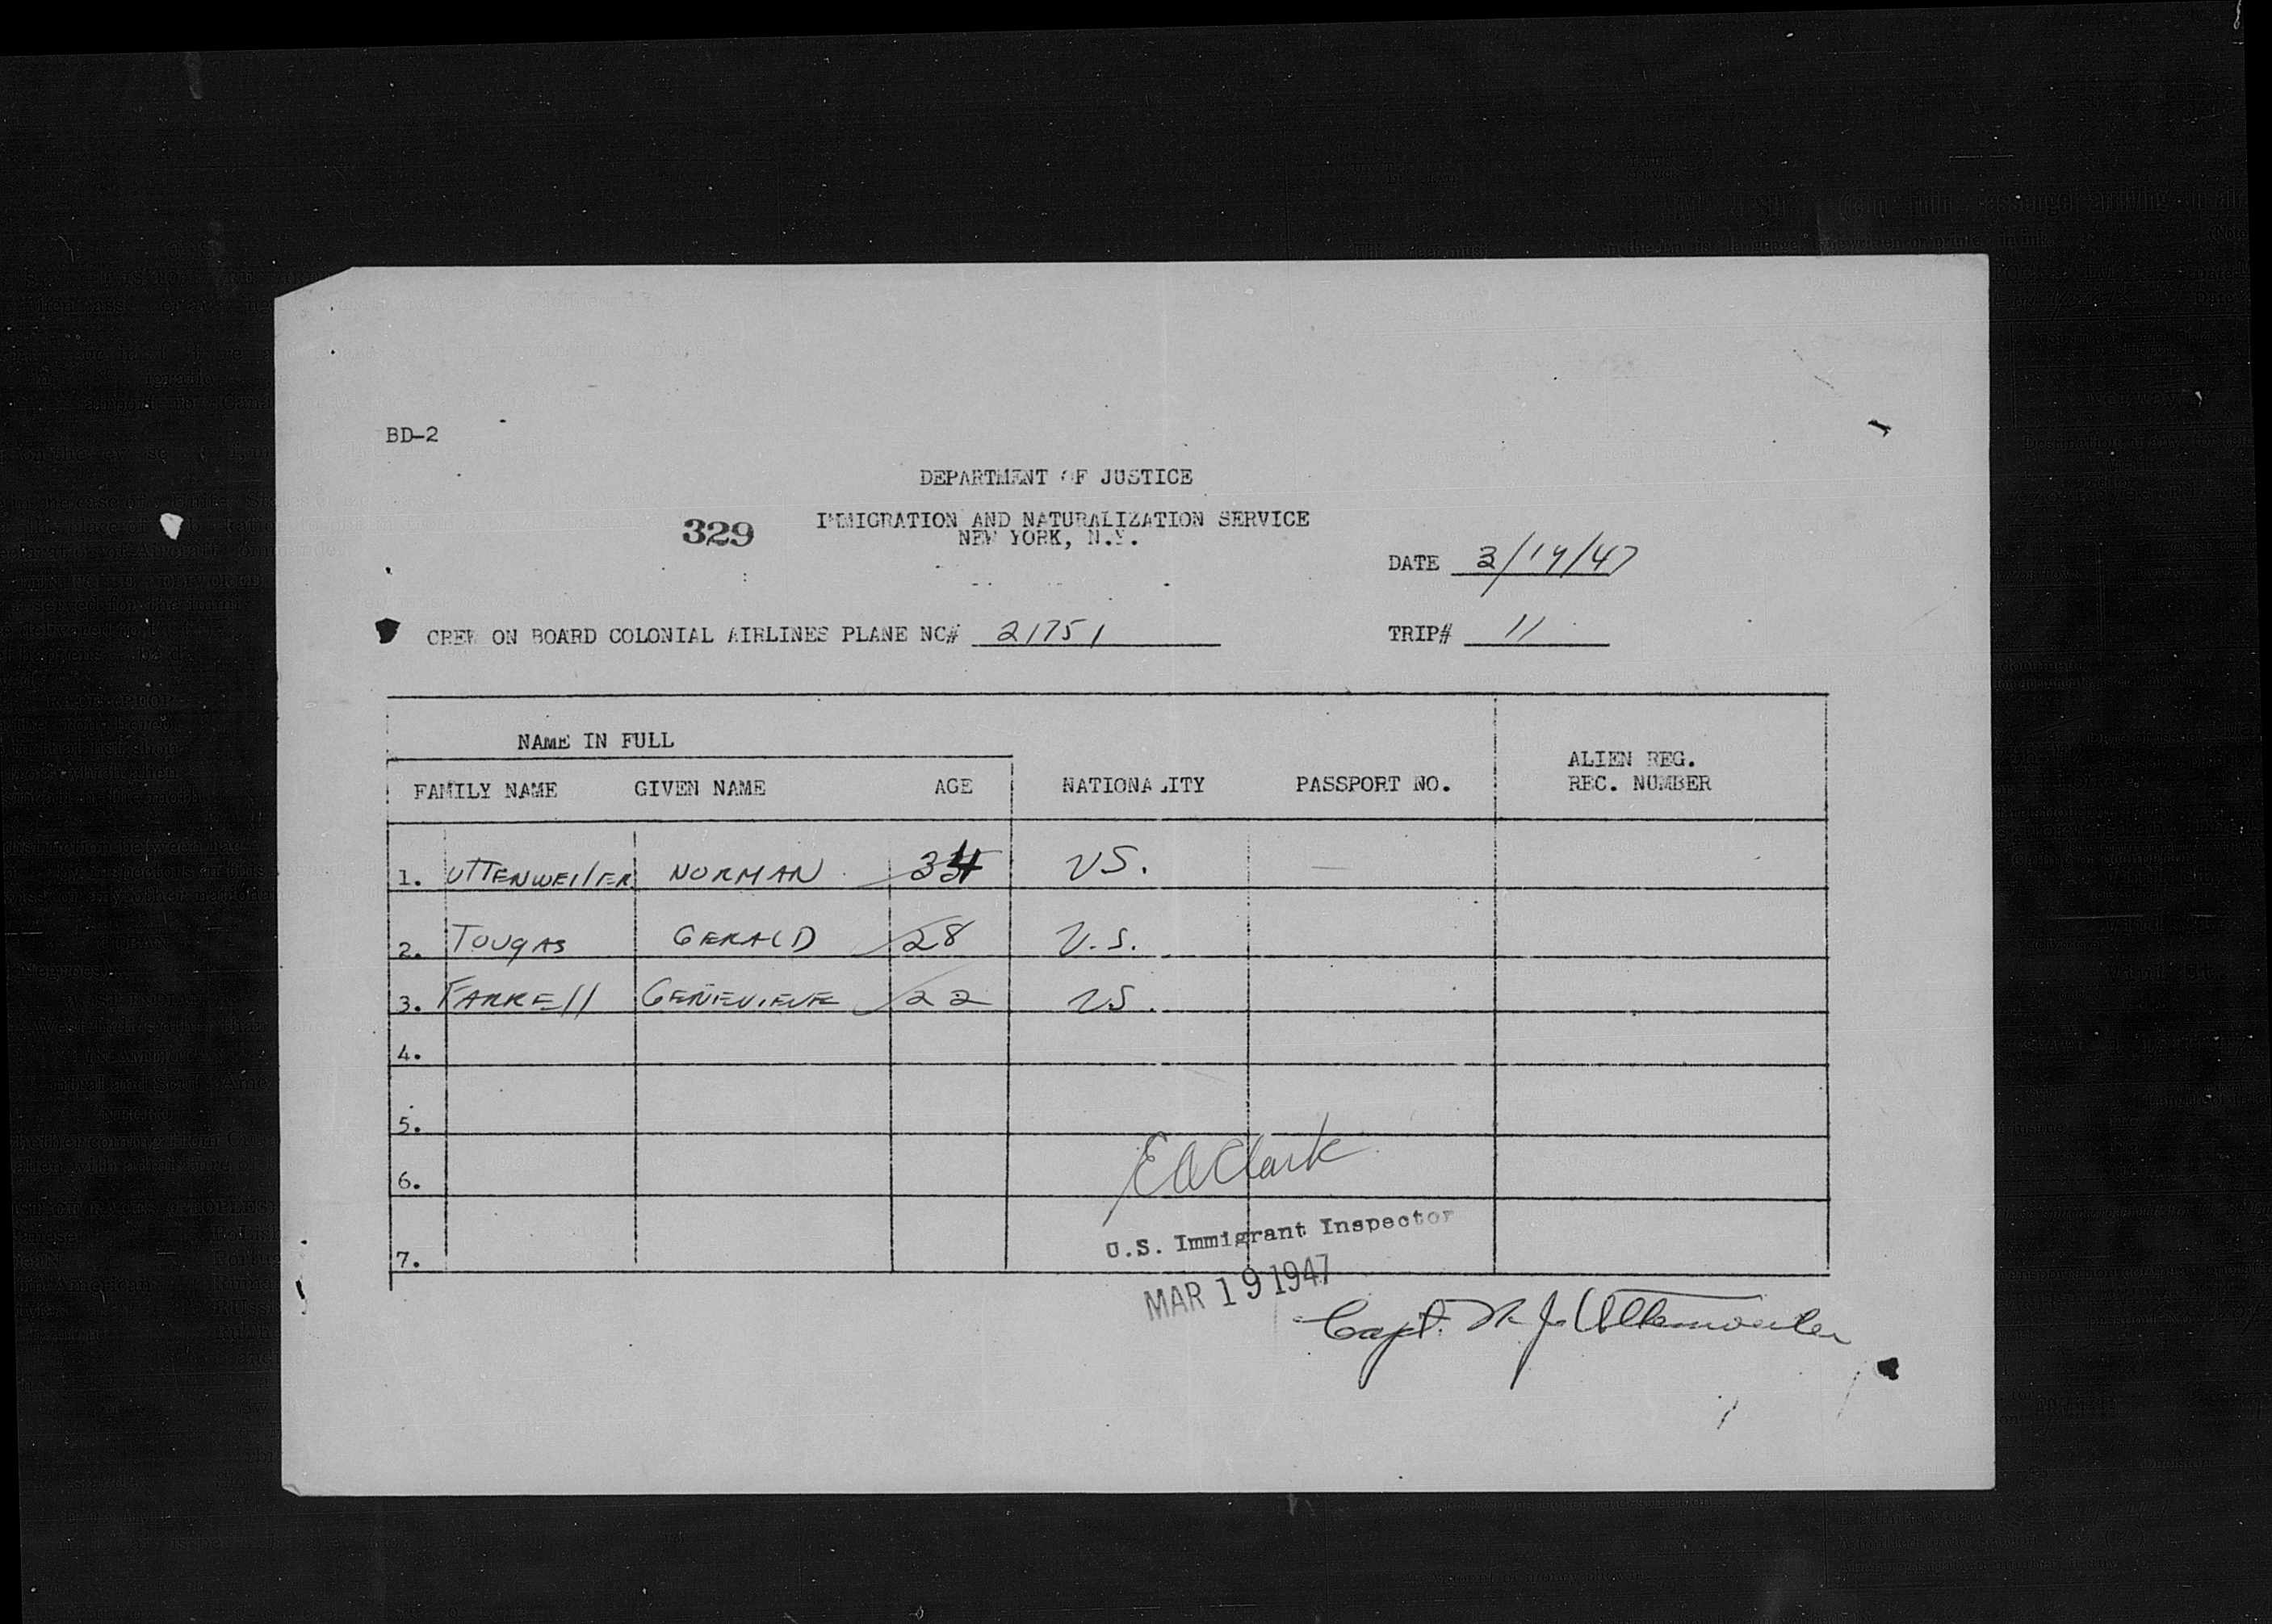 BD-2
DEPARTMENT OF JUSTICE
329
IMMIGRATION AND NATURALIZATION SERVICE
NEW YORK, N.Y.
DATE 3/19/47
CREW ON BOARD COLONIAL AIRLINES PLANE NC# 21751 TRIP# 11
NAME IN FULL
FAMILY NAME GIVEN NAME AGE NATIONALITY PASSPORT NO. ALIEN REG. REC. NUMBER
1. UTTENWEILER NORMAN 34 US. —
2. TOUGAS GERALD 28 U.S.
3. FARRELL GENEVIEVE 22 US.
4.
5.
6.
7.
E A Clark
U.S. Immigrant Inspector
MAR 19 1947
Capt. N. J. Uttenweiler